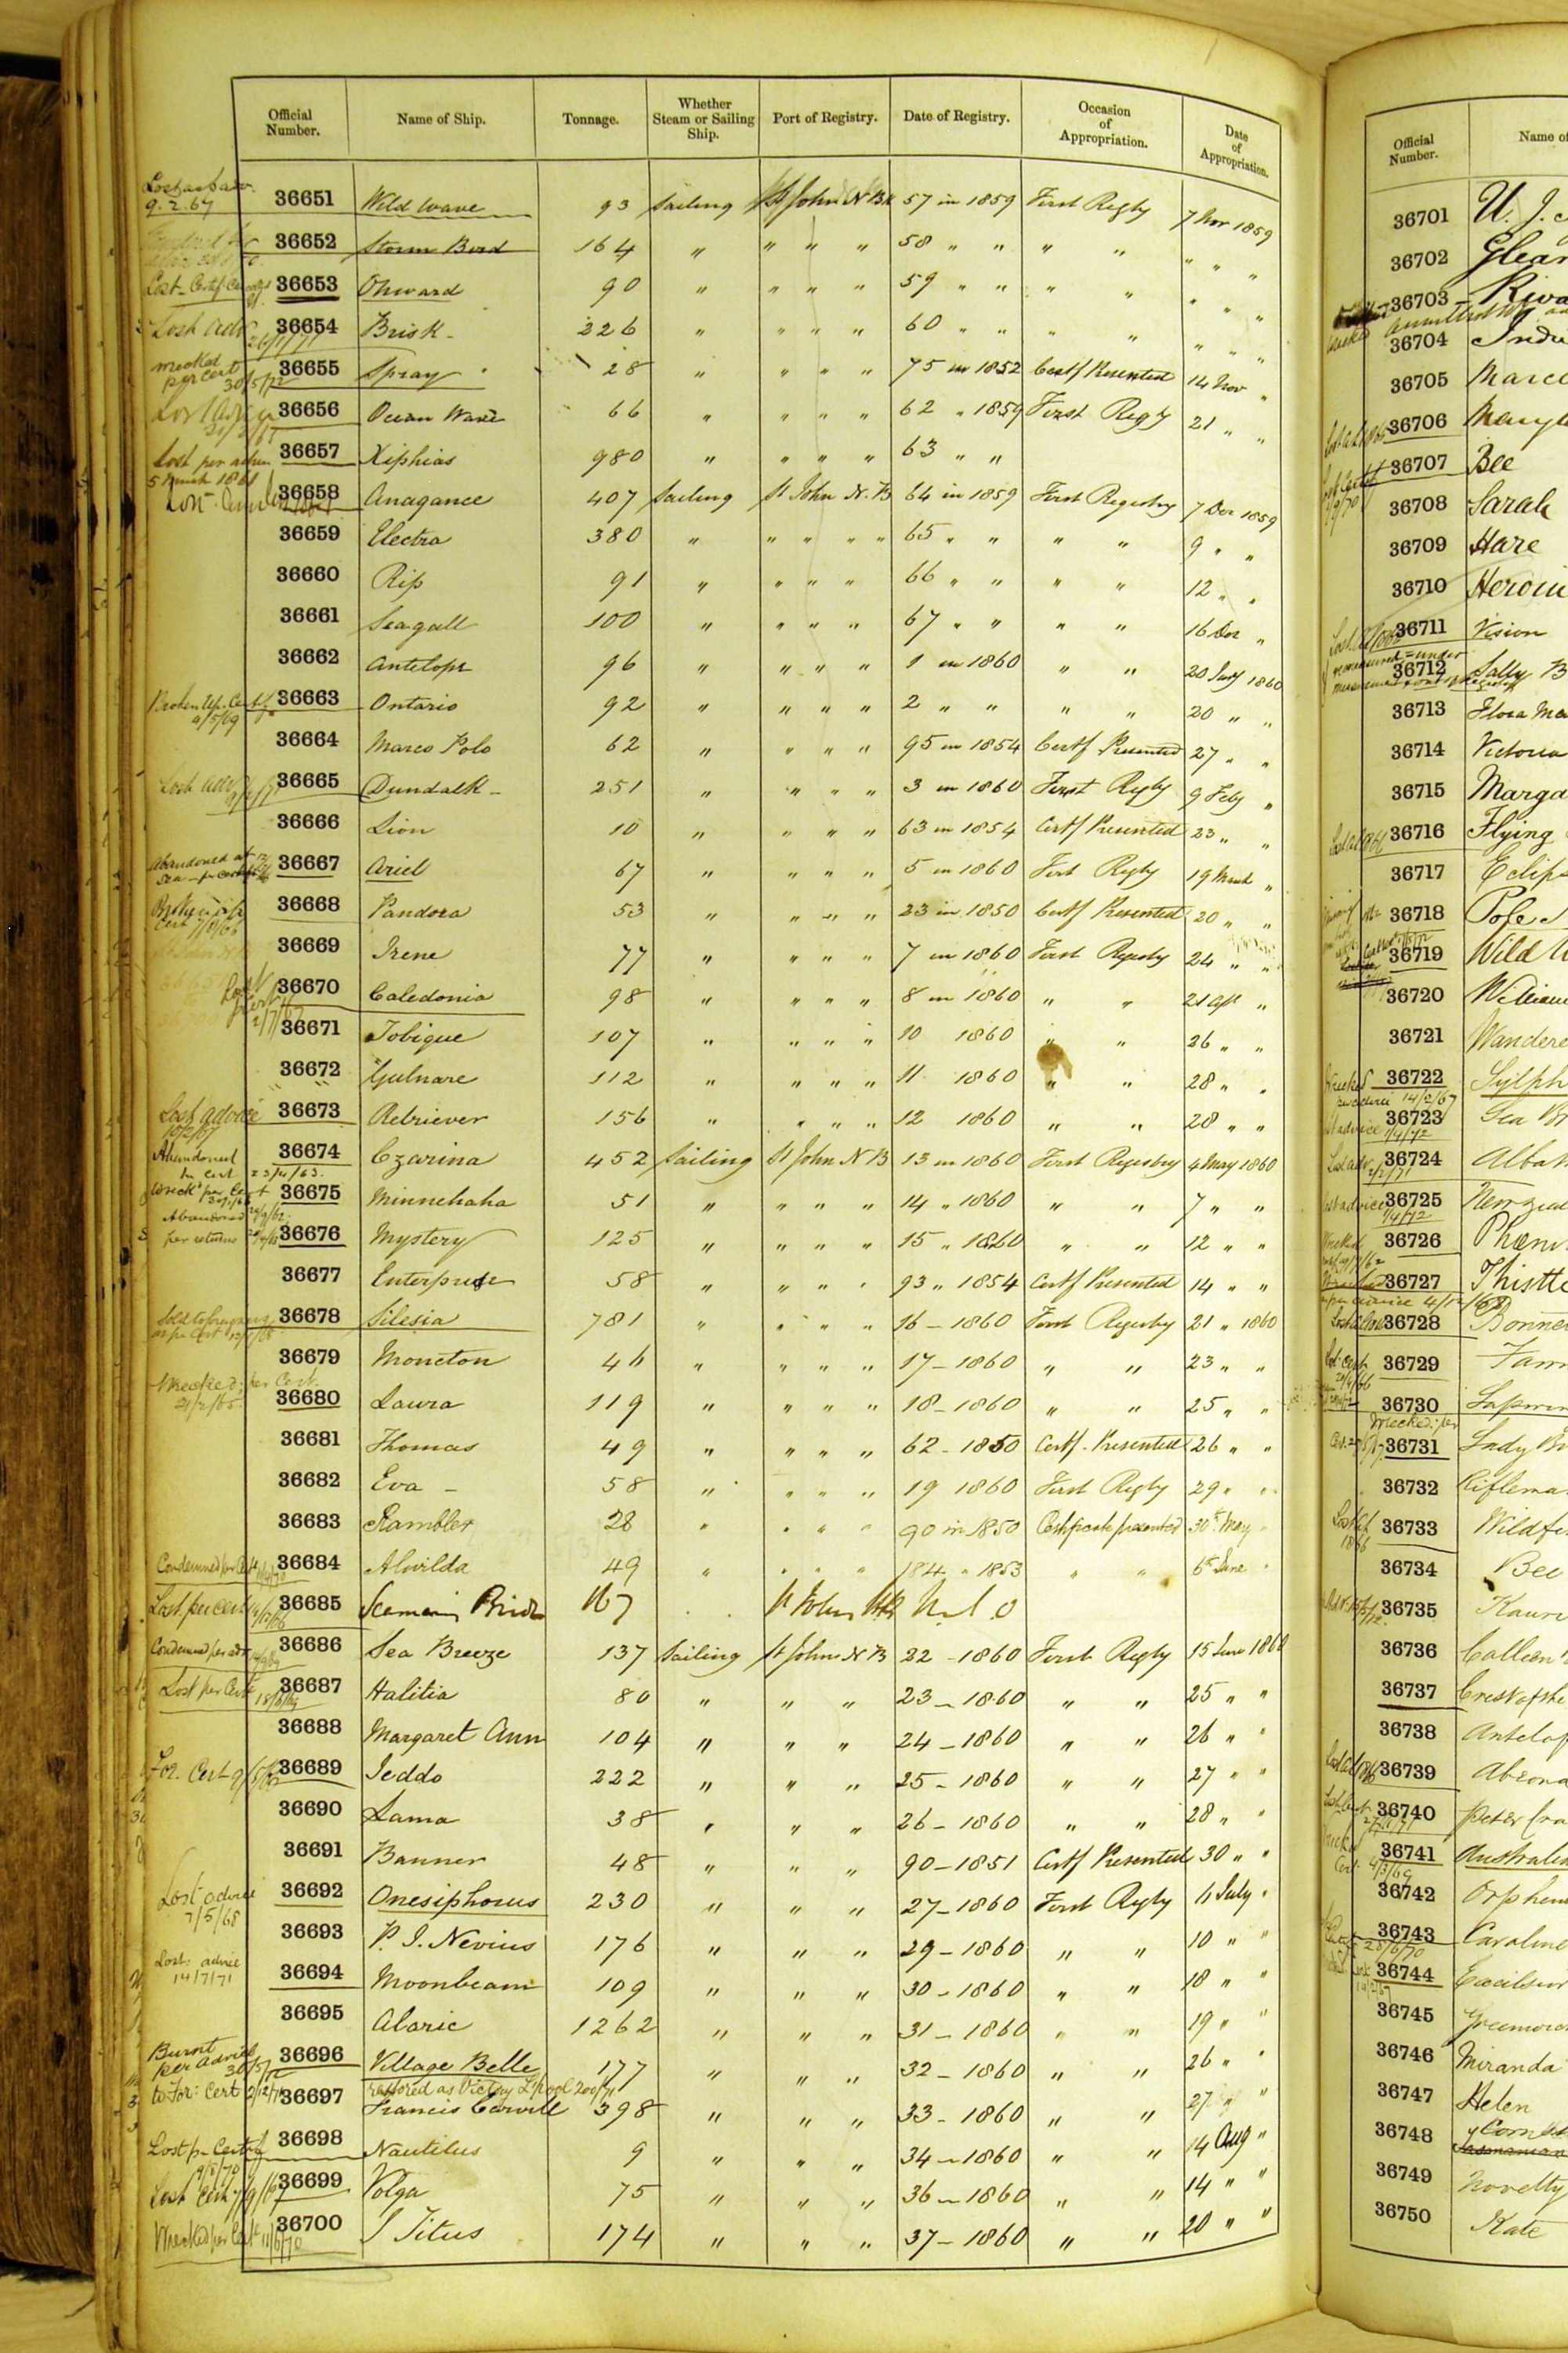 Official Number. Name of Ship. Tonnage. Whether Steam or Sailing Ship. Port of Registry. Date of Registry. Occasion of Appropriation. Date of Appropriation.
9.2.67 36651 Wild Wave 93 Sailing St John N Bk 57 in 1859 First Regty 7 Nov 1859
36652 Storm Bird 164 " " " " 58 " " " " " " "
Lost - Certf 36653 Onward 90 " " " " 59 " " " " " " "
Lost adv 36654 Brisk - 226 " " " " 60 " " " " " " "
wrecked per cert 30/5/72 36655 Spray 28 " " " " 75 in 1852 Certf Presented 14 Nov "
36656 Ocean Wave 66 " " " " 62 " 1859 First Regty 21 " "
Lost per 5 March 1861 36657 Xiphias 980 " " " " 63 " "
36658 Anagance 407 Sailing St John N. B 64 in 1859 First Registry 7 Dec 1859
36659 Electra 380 " " " " " 65 " " " " 9 " "
36660 Rip 91 " " " " 66 " " " " 12 " "
36661 Seagall 100 " " " " 67 " " " " 16 Dec "
36662 Antelope 96 " " " " 1 in 1860 " " 20 Jany 1860
Broken up Certf 9/5/69 36663 Ontario 92 " " " " 2 " " " " 20 " "
36664 Marco Polo 62 " " " " 95 in 1854 Certf Presented 27 " "
Lost adv 36665 Dundalk - 251 " " " " 3 in 1860 First Regty 9 Feby "
36666 Lion 10 " " " " 63 in 1854 Certf Presented 23 " "
Abandoned at Sea 36667 Ariel 67 " " " " 5 in 1860 First Regty 19 March "
36668 Pandora 53 " " " " 23 in 1850 Certf Presented 20 " "
36669 Irene 77 " " " " 7 in 1860 First Registy 24 " "
Lost 2/7/67 36670 Caledonia 98 " " " " 8 in 1860 " " 21 Apl "
36671 Tobique 107 " " " " 10 1860 " " 26 " "
36672 Gulnare 112 " " " " 11 1860 " " 28 " "
Lost advice 36673 Retriever 156 " " " " 12 1860 " " 28 " "
Abandoned cert 23/4/63. 36674 Czarina 452 Sailing St John N B 13 in 1860 First Registry 4 May 1860
36675 Minnehaha 51 " " " " 14 " 1860 " " 7 " "
Abandoned per returns 36676 Mystery 125 " " " " 15 " 1860 " " 12 " "
36677 Enterprise 58 " " " " 93 " 1854 Certf Presented 14 " "
36678 Silesia 781 " " " " 16 - 1860 First Registy 21 " 1860
36679 Moncton 46 " " " " 17 - 1860 " " 23 " "
Wrecked; per Cert. 21/2/65. 36680 Laura 119 " " " " 18 - 1860 " " 25 " "
36681 Thomas 49 " " " " 62 - 1850 Certf. Presented 26 " "
36682 Eva - 58 " " " " 19 1860 First Regty 29 " "
36683 Rambler 28 " " " " 90 in 1850 Certificate presented 30th May "
36684 Alwilda 49 " " " " 184 " 1853 " " 6th June "
Lost per cert 36685 167 St John
36686 Sea Breeze 137 Sailing St John N B 22 - 1860 First Regty 15 June 1860
Lost per Cert 18/8/69 36687 Halitia 80 " " " 23 - 1860 " " 25 " "
36688 Margaret Ann 104 " " " 24 - 1860 " " 26 " "
For. Cert 36689 Jeddo 222 " " " 25 - 1860 " " 27 " "
36690 Lama 38 " " " 26 - 1860 " " 28 " "
36691 Banner 48 " " " 90 - 1851 Certf Presented 30 " "
Lost advice 7/5/68 36692 Onesiphorus 230 " " " 27 - 1860 First Regty 4 July "
36693 P. I. Nevius 176 " " " 29 - 1860 " " 10 " "
Lost: advice 14/7/71 36694 Moonbeam 109 " " " 30 - 1860 " " 18 " "
36695 Alaric 1262 " " " 31 - 1860 " " 19 " "
Burnt per advice 36696 Village Belle 177 " " " 32 - 1860 " " 26 " "
to For: Cert 2/12/71 36697 Francis Carvill 398 " " " 33 - 1860 " " 27 " "
Lost pr Certif 36698 Nautilus 9 " " " 34 - 1860 " " 14 Aug "
36699 Volga 75 " " " 36 - 1860 " " 14 " "
Wrecked per Cert 11/6/70 36700 J Titus 174 " " " 37 - 1860 " " 20 " "
Official Number. Name of
36701 U. J.
36702 Glean
36703 Riva
36704 Indu
36705 Marce
36706 Mary
36707 Bee
36708 Sarah
36709 Hare
36710 Heroin
36711 Vision
36712 Sally B
36713 Flora Ma
36714 Victoria
36715 Marga
36716 Flying
36717 Eclips
36718 Pofe
36719 Wild W
36720 William
36721 Wandere
36722 Sylph
14/2/67
36723 Sea Br
36724 Alba
36725
36726 Phoeni
36727 Thistle
36728 Bonne
36729 Fann
36730 Lapwin
Wrecked; per
36731 Lady B
36732 Riflema
36733 Wildfi
36734 Bee
36735 Kauri
36736 Colleen
36737 Crest of the
36738 Antelop
36739 Abrona
36740 Peter Cra
36741 Australia
36742 Orpheu
36743 Caroline
36744 Excelsior
36745
36746 Miranda
36747 Helen
36748
36749 Novelty
36750 Kate